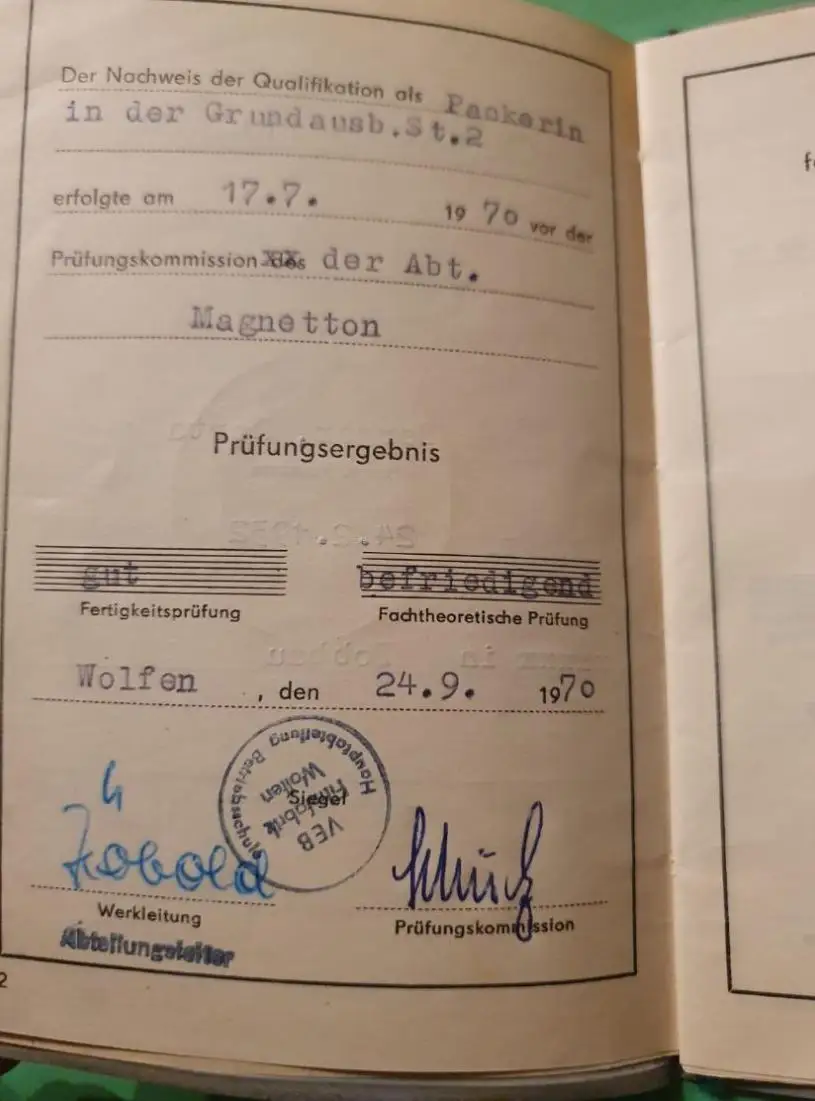 Der Nachweis der Qualifikation als Packerin
in der Grundausb.St.2
erfolgte am 17.7. 1970 vor der
Prüfungskommission des der Abt.
Magnetton
Prüfungsergebnis
24.2.1932
gut befriedigend
Fertigkeitsprüfung Fachtheoretische Prüfung
Wolfen, den 24.9. 1970
Hauptabteilung Betriebsschule
VEB
Filmfabrik
Wolfen
Siegel
Werkleitung Prüfungskommission
Abteilungsleiter
2